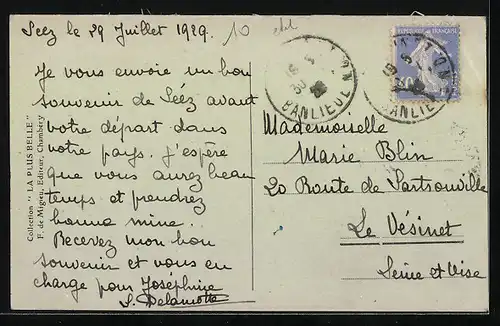 Séez le 29 Juillet 1929.
10
Je vous envoie un bon
souvenir de Séez avant
votre départ dans
votre pays. J'espère
que vous aurez beau
temps et prendrez
bonne mine.
Recevez mon bon
souvenir et vous en
charge pour Joséphine
S. Delamotte
Collection "LA PLUS BELLE"
F. de Migieu, Editeur, Chambéry
BANLIEUE
REPUBLIQUE FRANÇAISE
BANLIEUE
Mademoiselle
Marie Blin
20 Route de Sartrouville
Le Vésinet
Seine et Oise